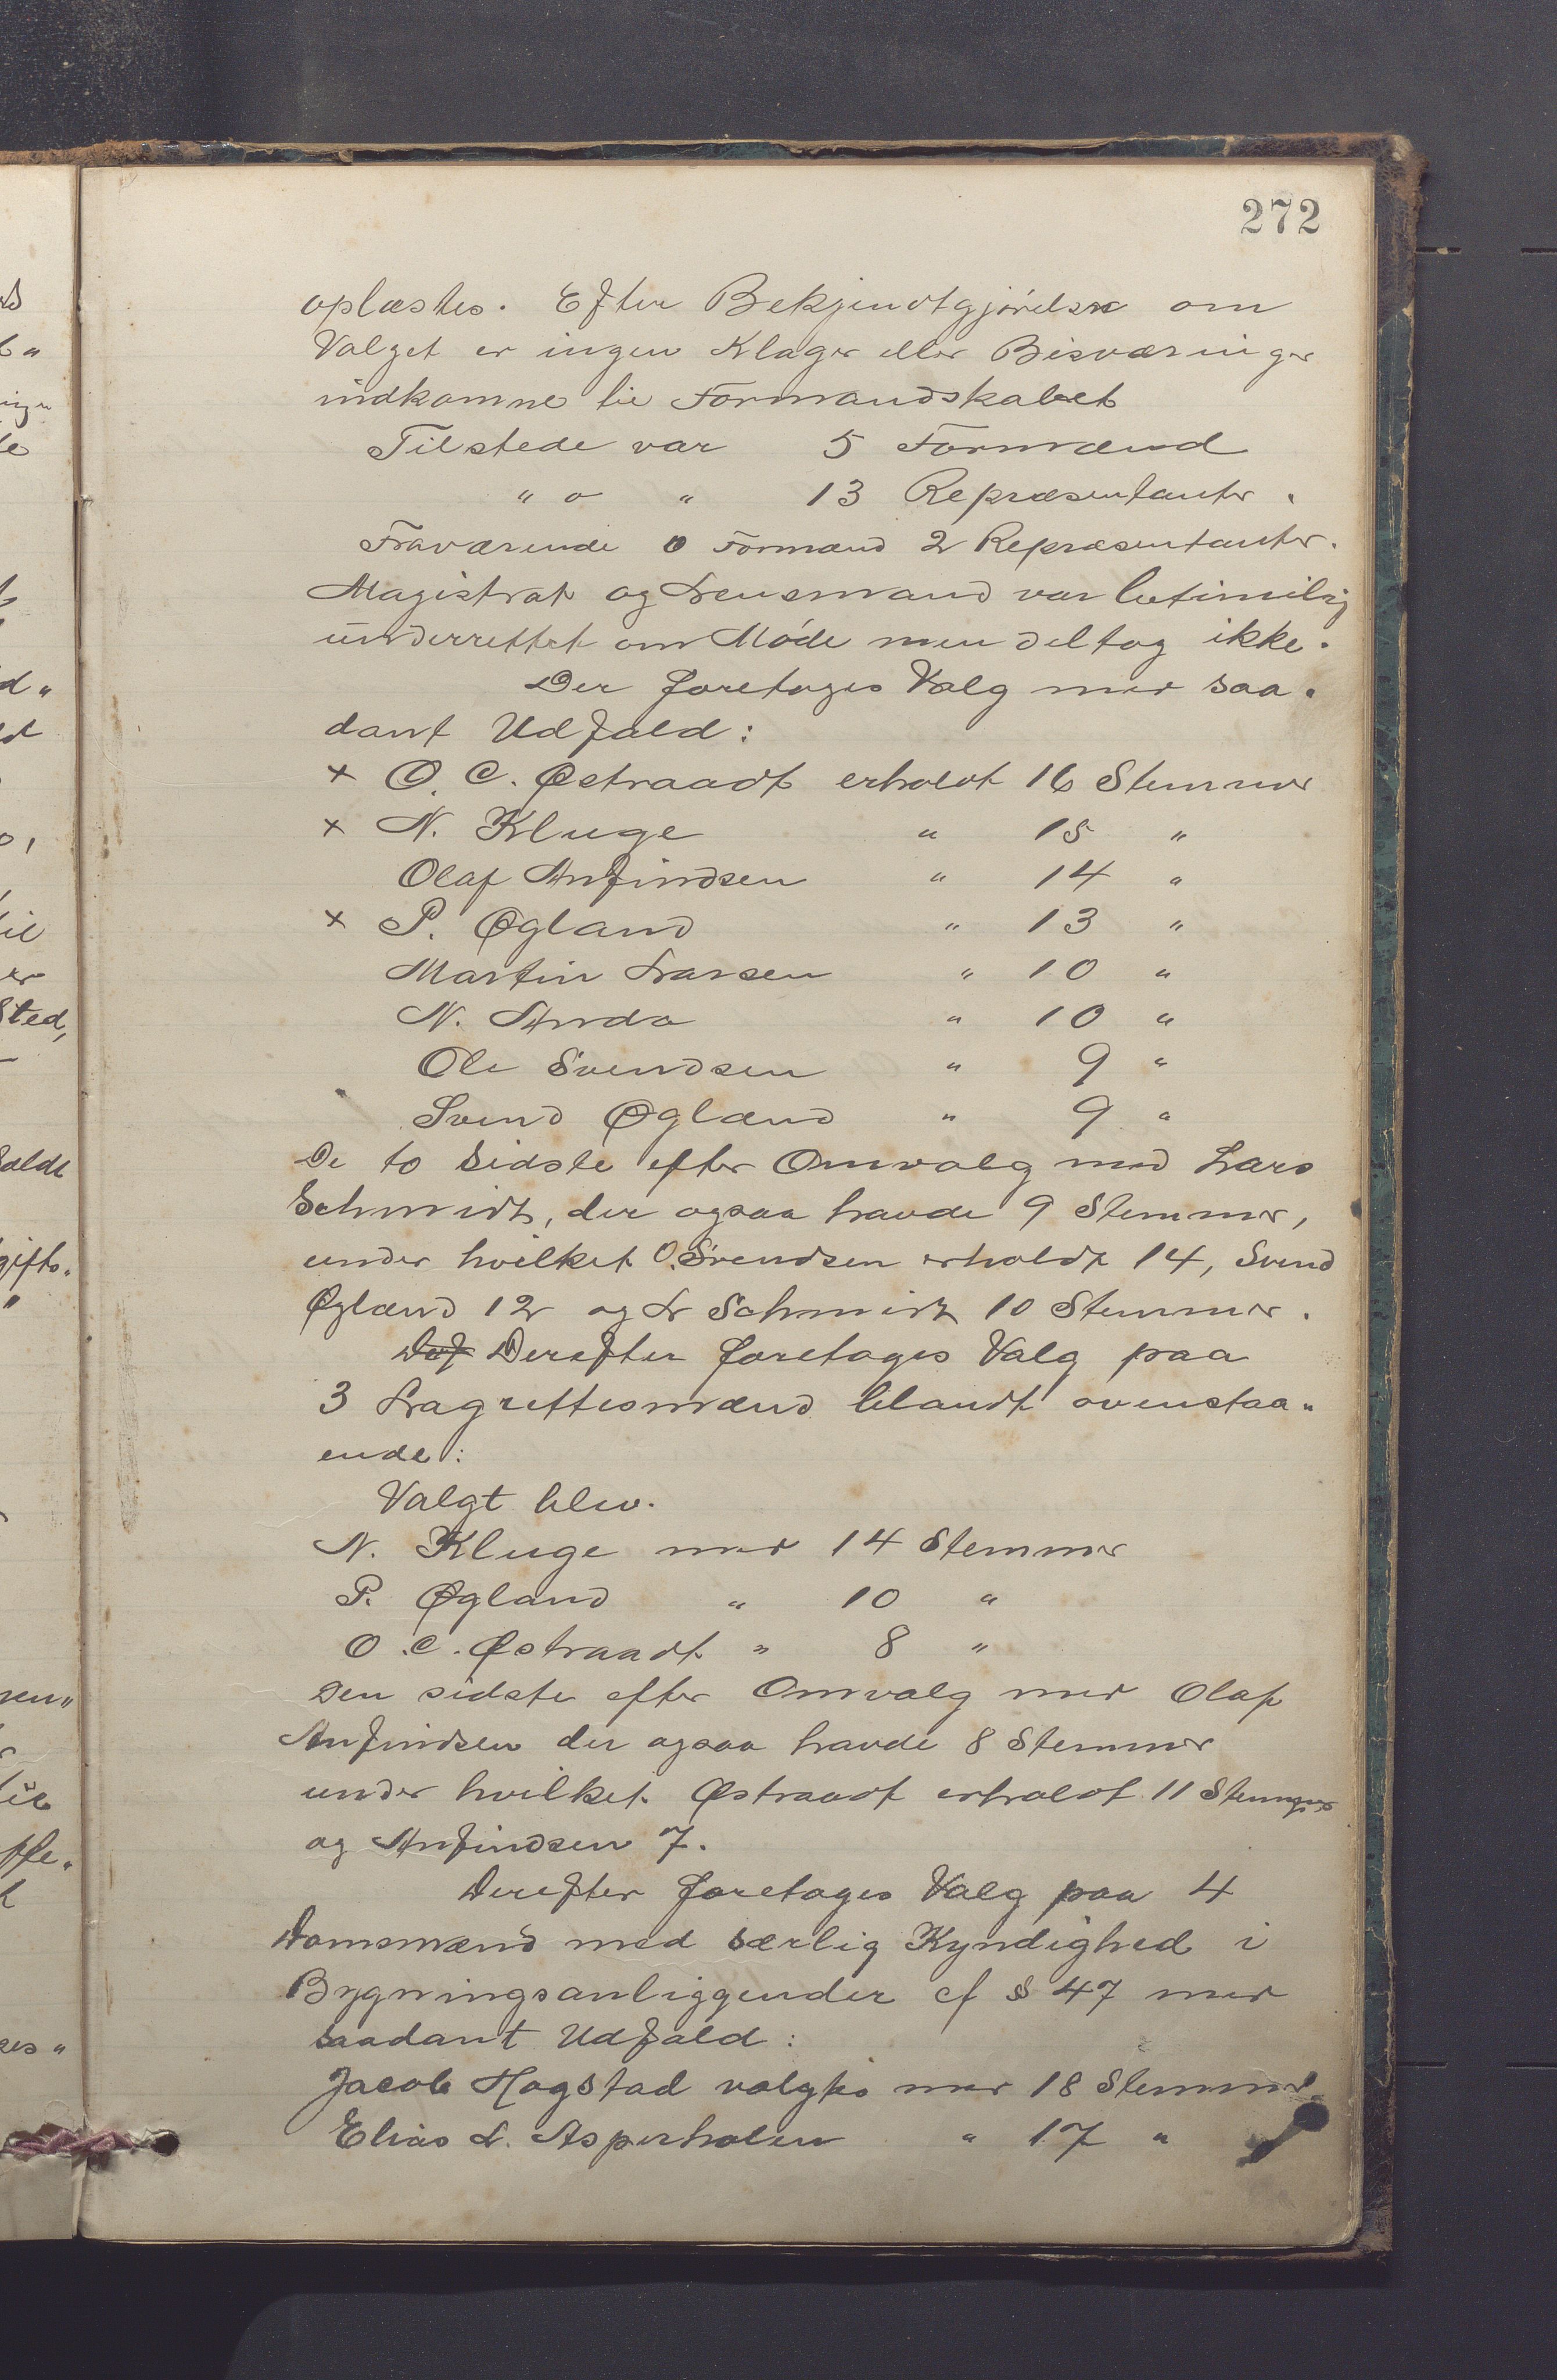 272
oplæstes. Efter Bekjendtgjørelse om
Valget er ingen Klager eller Besværinger
indkomne til Formandskabet
Tilstede var 5 Formænd
" o " 13 Repræsentanter.
Fraværende 0 Formænd 2 Repræsentanter.
Magistrat og Lensmand var betimelig
underrettet om Møde men deltog ikke.
Der foretoges Valg med saa"
dant Udfald:
x O. C. Østraadt erholdt 16 Stemmer
x N. Kluge " 15 "
Olaf Anfindsen " 14 "
x P. Øgland " 13 "
Martin Larsen " 10 "
N. Anda " 10 "
Ole Svendsen " 9 "
Svend Øglænd " 9 "
De to sidste efter Omvalg med Lars
Schmidt, der ogsaa havde 9 Stemmer,
under hvilket O. Svendsen erholdt 14, Svend
Øglænd 12 og L Schmidt 10 Stemmer.
Derefter foretoges Valg paa
3 Lagrettesmænd blandt ovenstaa"
ende:
Valgt blev.
N. Kluge med 14 Stemmer
P. Øgland " 10 "
O. C. Østraadt " 8 "
Den sidste efter Omvalg med Olaf
Anfindsen der ogsaa havde 8 Stemmer
under hvilket Østraadt erholdt 11 Stemmer
og Anfindsen 7.
Derefter foretoges Valg paa 4
Domsmænd med særlig Kyndighed i
Bygningsanliggender cf § 47 med
saadant Udfald:
Jacob Hogstad valgtes med 18 Stemmer
Elias L. Asperholen " 17 "